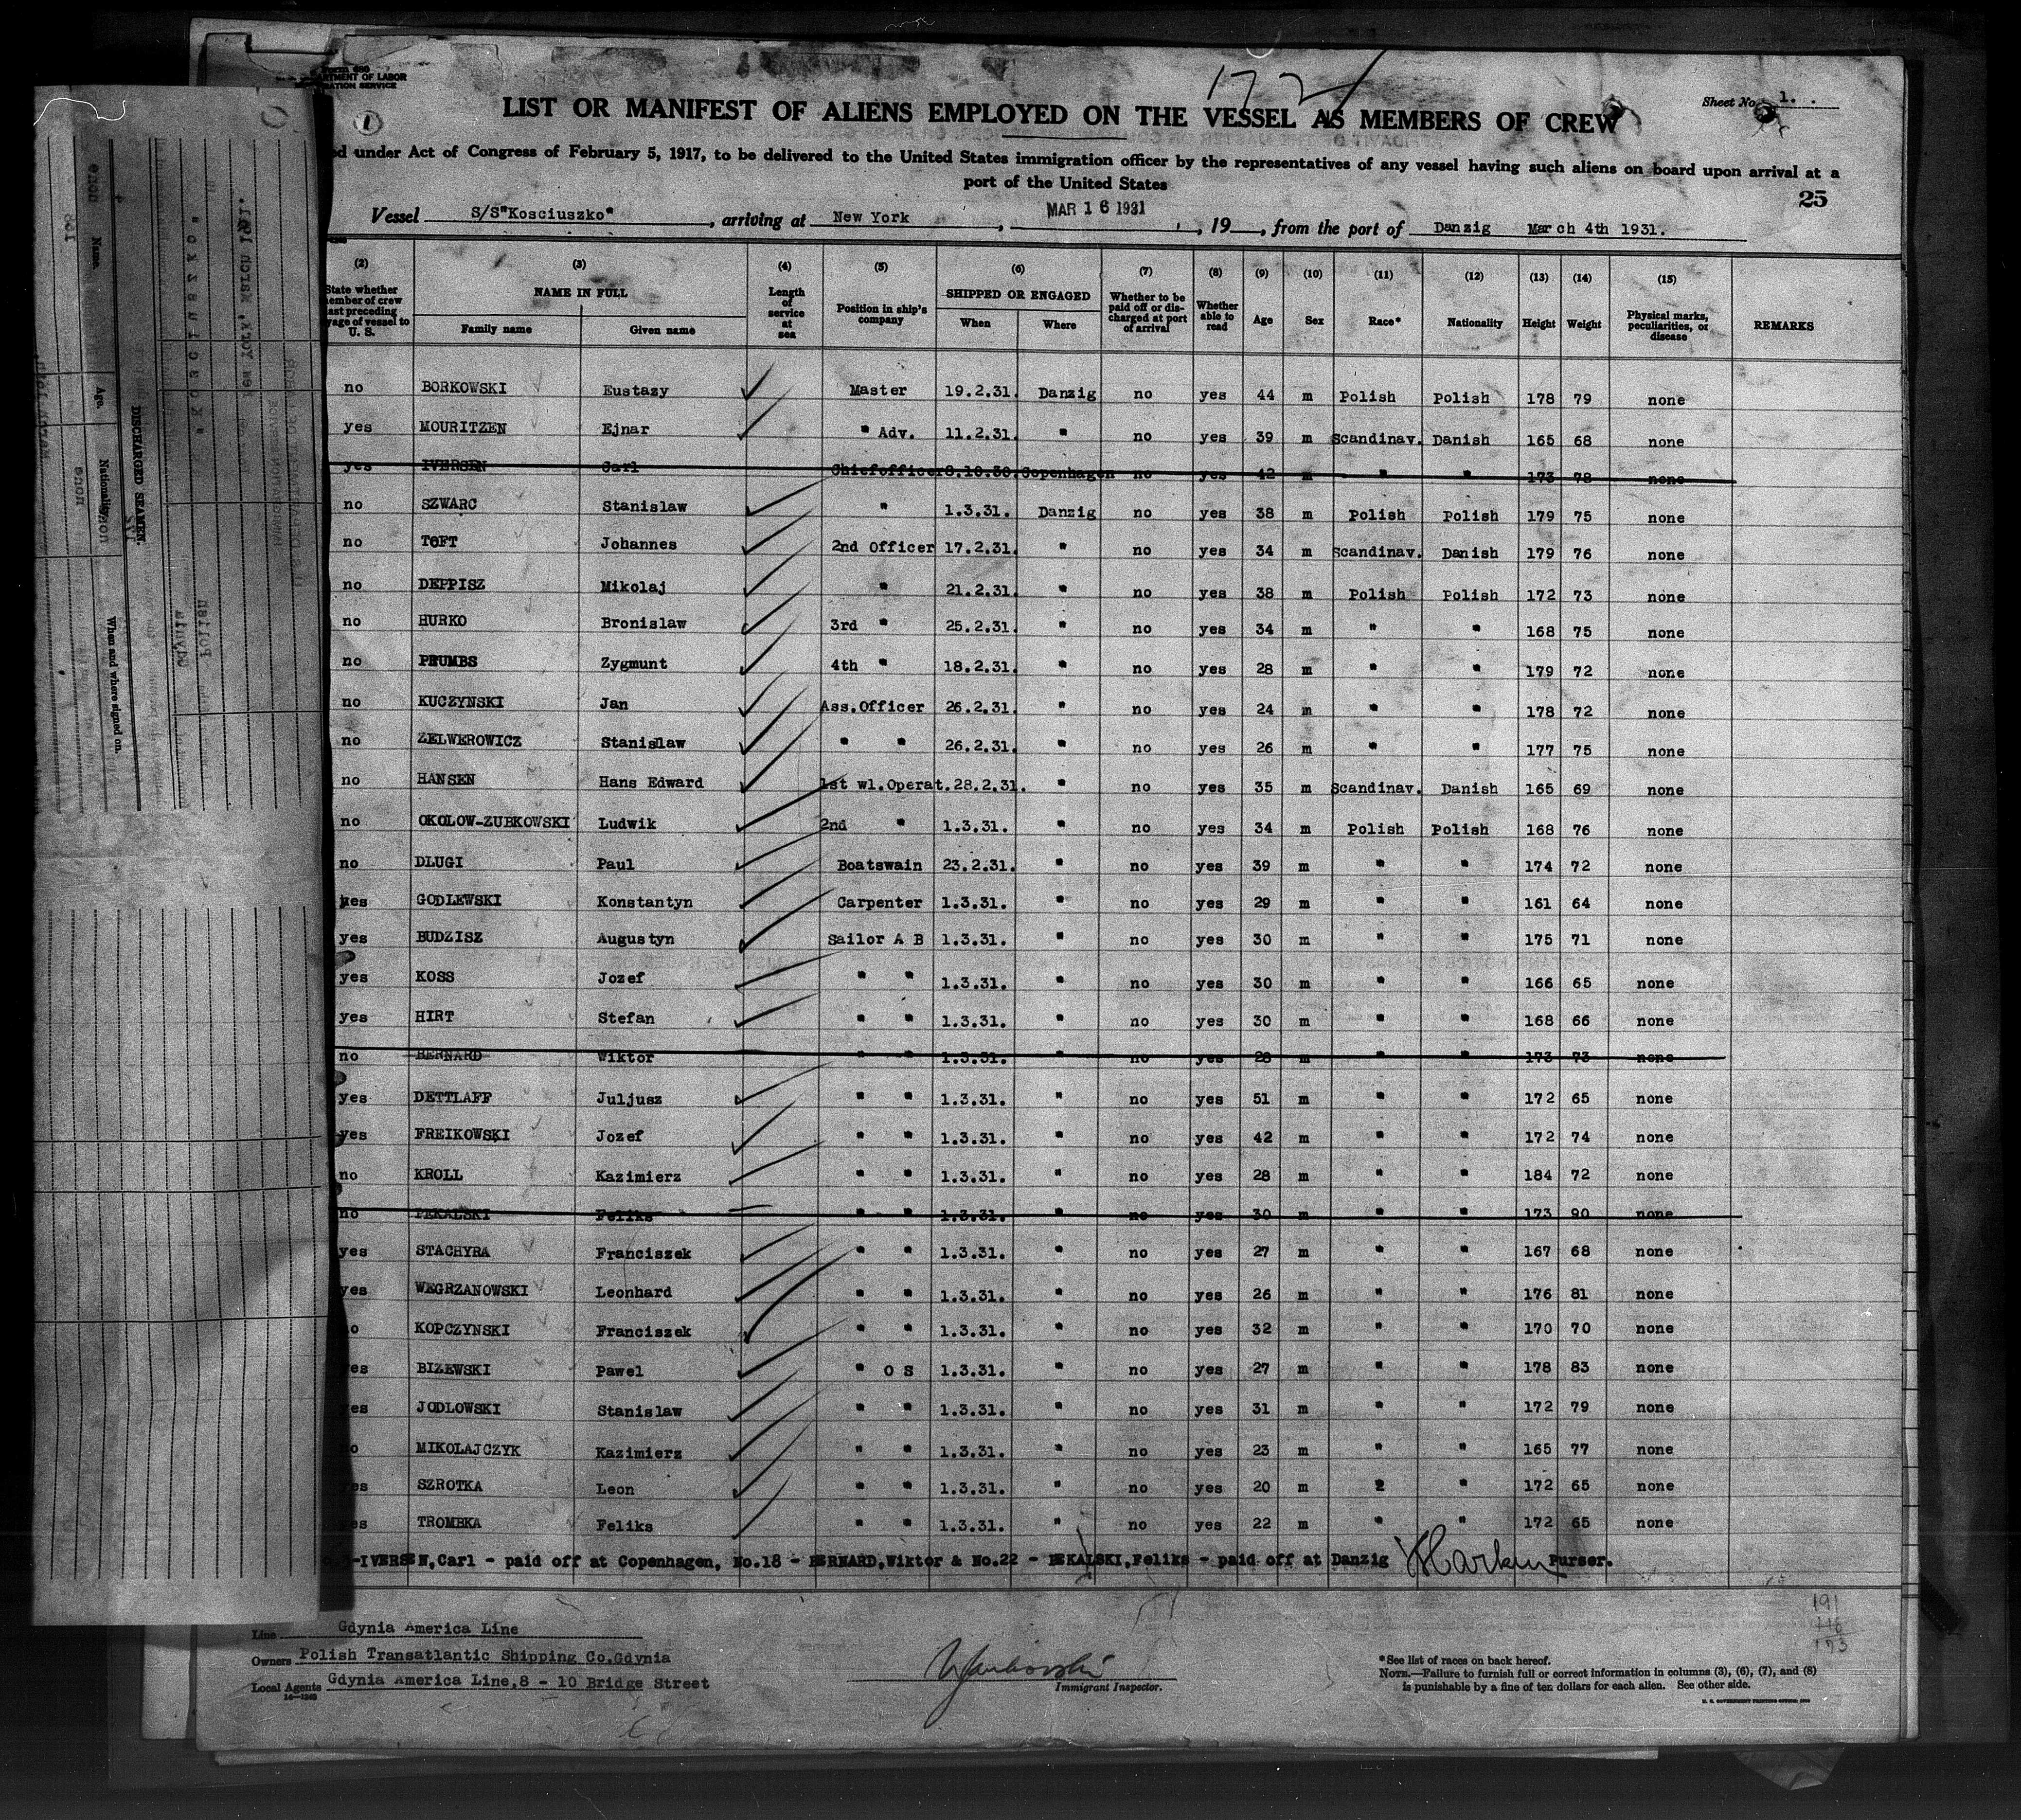 172
Sheet No. 1.
LIST OR MANIFEST OF ALIENS EMPLOYED ON THE VESSEL AS MEMBERS OF CREW
under Act of Congress of February 5, 1917, to be delivered to the United States immigration officer by the representatives of any vessel having such aliens on board upon arrival at a
port of the United States
25
Vessel S/S"Kosciuszko", arriving at New York, MAR 16 1931, 19__, from the port of Danzig March 4th 1931.
(2) (3) (4) (5) (6) (7) (8) (9) (10) (11) (12) (13) (14) (15)
State whether member of crew last preceding voyage of vessel to U. S. | NAME IN FULL Family name Given name | Length of service at sea | Position in ship's company | SHIPPED OR ENGAGED When Where | Whether to be paid off or discharged at port of arrival | Whether able to read | Age | Sex | Race* | Nationality | Height | Weight | Physical marks, peculiarities, or disease | REMARKS
no BORKOWSKI Eustazy Master 19.2.31. Danzig no yes 44 m Polish Polish 178 79 none
yes MOURITZEN Ejnar " Adv. 11.2.31. " no yes 39 m Scandinav. Danish 165 68 none
yes IVERSEN Carl Chiefofficer 8.10.30. Copenhagen no yes 42 m " " 173 78 none
no SZWARC Stanislaw " 1.3.31. Danzig no yes 38 m Polish Polish 179 75 none
no TOFT Johannes 2nd Officer 17.2.31. " no yes 34 m Scandinav. Danish 179 76 none
no DEPPISZ Mikolaj " 21.2.31. " no yes 38 m Polish Polish 172 73 none
no HURKO Bronislaw 3rd " 25.2.31. " no yes 34 m " " 168 75 none
no PRUMBS Zygmunt 4th " 18.2.31. " no yes 28 m " " 179 72 none
no KUCZYNSKI Jan Ass.Officer 26.2.31. " no yes 24 m " " 178 72 none
no ZELWEROWICZ Stanislaw " " 26.2.31. " no yes 26 m " " 177 75 none
no HANSEN Hans Edward 1st wl.Operat. 28.2.31. " no yes 35 m Scandinav. Danish 165 69 none
no OKOLOW-ZUBKOWSKI Ludwik 2nd " 1.3.31. " no yes 34 m Polish Polish 168 76 none
no DLUGI Paul Boatswain 23.2.31. " no yes 39 m " " 174 72 none
yes GODLEWSKI Konstantyn Carpenter 1.3.31. " no yes 29 m " " 161 64 none
yes BUDZISZ Augustyn Sailor A B 1.3.31. " no yes 30 m " " 175 71 none
yes KOSS Jozef " " 1.3.31. " no yes 30 m " " 166 65 none
yes HIRT Stefan " " 1.3.31. " no yes 30 m " " 168 66 none
no BERNARD Wiktor " " 1.3.31. " no yes 28 m " " 173 73 none
yes DETTLAFF Juljusz " " 1.3.31. " no yes 51 m " " 172 65 none
yes FREIKOWSKI Jozef " " 1.3.31. " no yes 42 m " " 172 74 none
no KROLL Kazimierz " " 1.3.31. " no yes 28 m " " 184 72 none
no PEKALSKI Feliks " " 1.3.31. " no yes 30 m " " 173 90 none
yes STACHYRA Franciszek " " 1.3.31. " no yes 27 m " " 167 68 none
yes WEGRZANOWSKI Leonhard " " 1.3.31. " no yes 26 m " " 176 81 none
no KOPCZYNSKI Franciszek " " 1.3.31. " no yes 32 m " " 170 70 none
yes BIZEWSKI Pawel " O S 1.3.31. " no yes 27 m " " 178 83 none
yes JODLOWSKI Stanislaw " " 1.3.31. " no yes 31 m " " 172 79 none
no MIKOLAJCZYK Kazimierz " " 1.3.31. " no yes 23 m " " 165 77 none
yes SZROTKA Leon " " 1.3.31. " no yes 20 m 2 " 172 65 none
yes TROMBKA Feliks " " 1.3.31. " no yes 22 m " " 172 65 none
IVERSEN,Carl - paid off at Copenhagen, No.18 - BERNARD,Wiktor & No.22 - PEKALSKI,Feliks - paid off at Danzig Purser.
Line Gdynia America Line
Owners Polish Transatlantic Shipping Co.Gdynia
Local Agents Gdynia America Line,8 - 10 Bridge Street
Immigrant Inspector.
*See list of races on back hereof.
NOTE.—Failure to furnish full or correct information in columns (3), (6), (7), and (8)
is punishable by a fine of ten dollars for each alien. See other side.
DISCHARGED SEAMEN.
Name. Age. Nationality. When and where signed on.